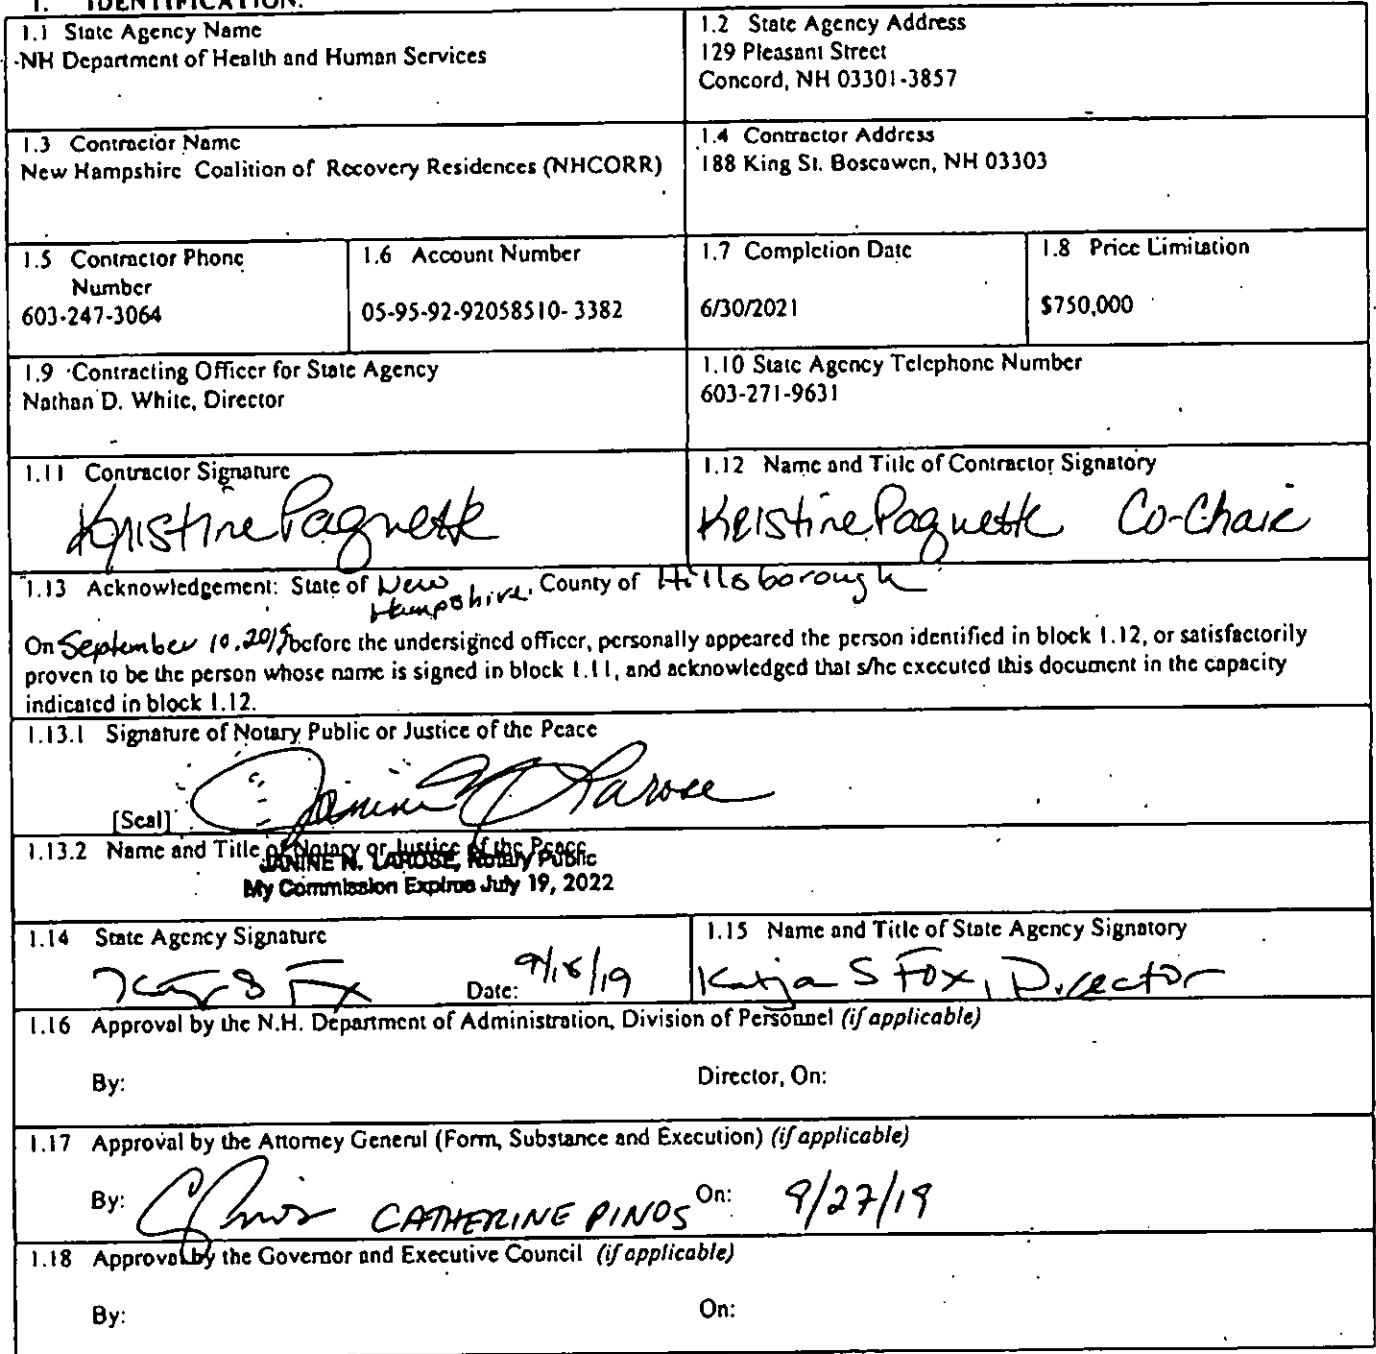 1. IDENTIFICATION.
1.1 State Agency Name
NH Department of Health and Human Services
1.2 State Agency Address
129 Pleasant Street
Concord, NH 03301-3857
1.3 Contractor Name
New Hampshire Coalition of Recovery Residences (NHCORR)
1.4 Contractor Address
188 King St. Boscawen, NH 03303
1.5 Contractor Phone
Number
603-247-3064
1.6 Account Number
05-95-92-92058510-3382
1.7 Completion Date
6/30/2021
1.8 Price Limitation
$750,000
1.9 Contracting Officer for State Agency
Nathan D. White, Director
1.10 State Agency Telephone Number
603-271-9631
1.11 Contractor Signature
Kristine Paquette
1.12 Name and Title of Contractor Signatory
Kristine Paquette Co-Chair
1.13 Acknowledgement: State of New Hampshire, County of Hillsborough
On September 10, 2019 before the undersigned officer, personally appeared the person identified in block 1.12, or satisfactorily
proven to be the person whose name is signed in block 1.11, and acknowledged that s/he executed this document in the capacity
indicated in block 1.12.
1.13.1 Signature of Notary Public or Justice of the Peace
Janine N Larose
[Seal]
1.13.2 Name and Title of Notary or Justice of the Peace
JANINE N. LAROSE, Notary Public
My Commission Expires July 19, 2022
1.14 State Agency Signature
Date: 9/18/19
1.15 Name and Title of State Agency Signatory
Katja S Fox, Director
1.16 Approval by the N.H. Department of Administration, Division of Personnel (if applicable)
By: Director, On:
1.17 Approval by the Attorney General (Form, Substance and Execution) (if applicable)
By: CATHERINE PINOS On: 9/27/19
1.18 Approval by the Governor and Executive Council (if applicable)
By: On: